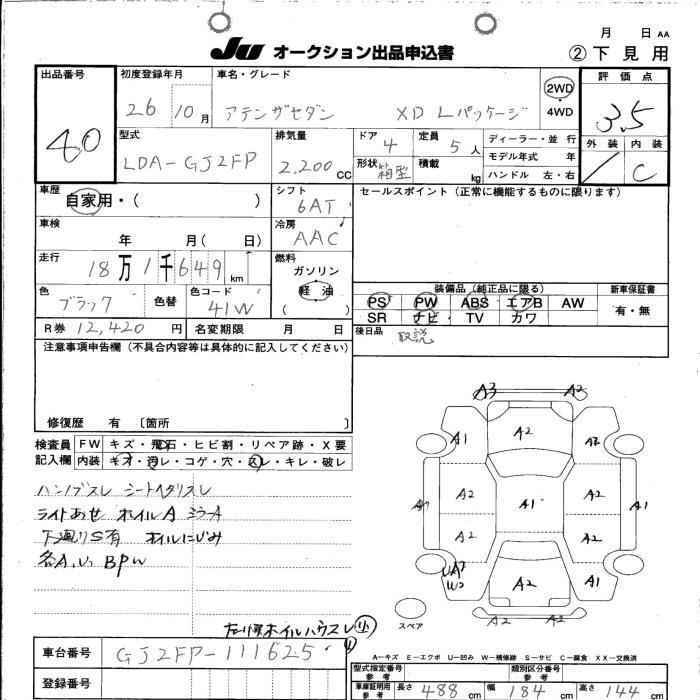 月 日 AA
JU オークション出品申込書 ②下見用
出品番号 初度登録年月 車名・グレード 評価点
40
26 10月 アテンザセダン XD Lパッケージ 2WD・4WD 3.5
型式 排気量 ドア 定員 ディーラー・並行 外装 内装
LDA-GJ2FP 2,200 CC 4 5人 モデル年式 年 C
形状 箱型 積載 kg ハンドル 左・右
車歴 シフト セールスポイント(正常に機能するものに限ります)
自家用・( ) 6AT
車検 冷房
年 月( 日) AAC
走行 燃料
18万1千649km ガソリン
軽油
( )
色 色替 色コード 装備品(純正品に限る) 新車保証書
ブラック 41W PS PW ABS エアB AW 有・無
SR ナビ TV カワ
R券 12,420円 名変期限 月 日 後日品 取説
注意事項申告欄(不具合内容等は具体的に記入してください)
修復歴 有 〔箇所 〕
検査員 FW キズ・飛石・ヒビ割・リペア跡・X要
記入欄 内装 キズ・汚レ・コゲ・穴・スレ・キレ・破レ
ハンドルスレ シートヘタリスレ
ライトあせ ホイルA ミラーA
下廻りS有 ホイルにじみ
各A.U. BPW
ホイルハウスレ 小
A3 A2
A1 A2 A2
A2 A1 A2 A1
A2 A2
UA2 W2 A2 A1
A2 A2
スペア
A-キズ E-エクボ U-凹み W-補修跡 S-サビ C-腐食 XX-交換済
車台番号 GJ2FP-111625
登録番号
型式指定番号 参考 類別区分番号 参考
車庫証明用 参考 長さ 488cm 幅 184cm 高さ 144cm